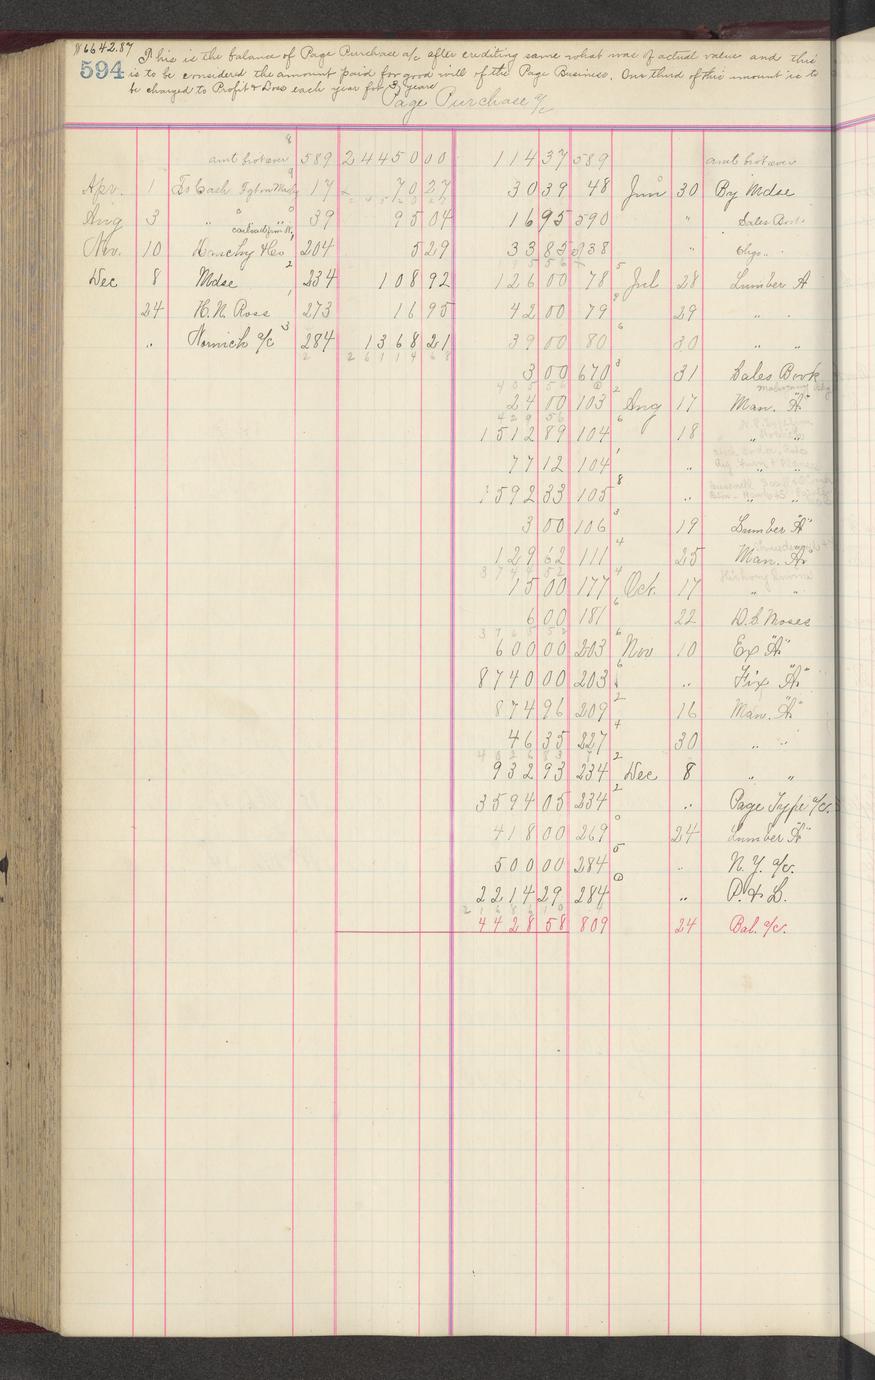 $6642.87
This is the balance of Page Purchase a/c after crediting same what was of actual value and this
594 is to be considered the amount paid for good will of the Page Business. One third of this amount is to
be charged to Profit & Loss each year for 3 years
Page Purchase a/c
amt brot over 589 24450 00 114 37 589 amt brot over
Apr. 1 To Cash 17 70 27 30 39 48 Jun 30 By Mdse
Aug 3 " " 39 95 04 16 95 590 " Sales Book
Nov. 10 & Co 204 5 29 33 85 " Chgs. "
Dec 8 Mdse 234 108 92 126 00 78 Jul 28 Lumber A
24 H. N. Ross 273 16 95 42 00 79 29 " "
" Norwich a/c 284 1368 21 39 00 80 30 " "
26114 68
3 00 670 31 Sales Book
24 00 103 Aug 17 Man. "A"
429 56
1512 89 104 18 " "
77 12 104 "
1592 33 105 " " "
3 00 106 19 Lumber "A"
129 62 111 25 Man. "A"
3744 52
15 00 177 Oct. 17 " "
6 00 181 22 D. S. Moses
3765 52
600 00 203 Nov 10 Ex "A"
8740 00 203 " Fix "A"
874 96 209 16 Man. "A"
46 35 227 30 " "
932 93 234 Dec 8 " "
3594 05 234 " Page Type a/c.
418 00 269 24 Lumber "A"
500 00 284 " N. Y. a/c.
2214 29 284 " P. & L.
4428 58 809 24 Bal. a/c.